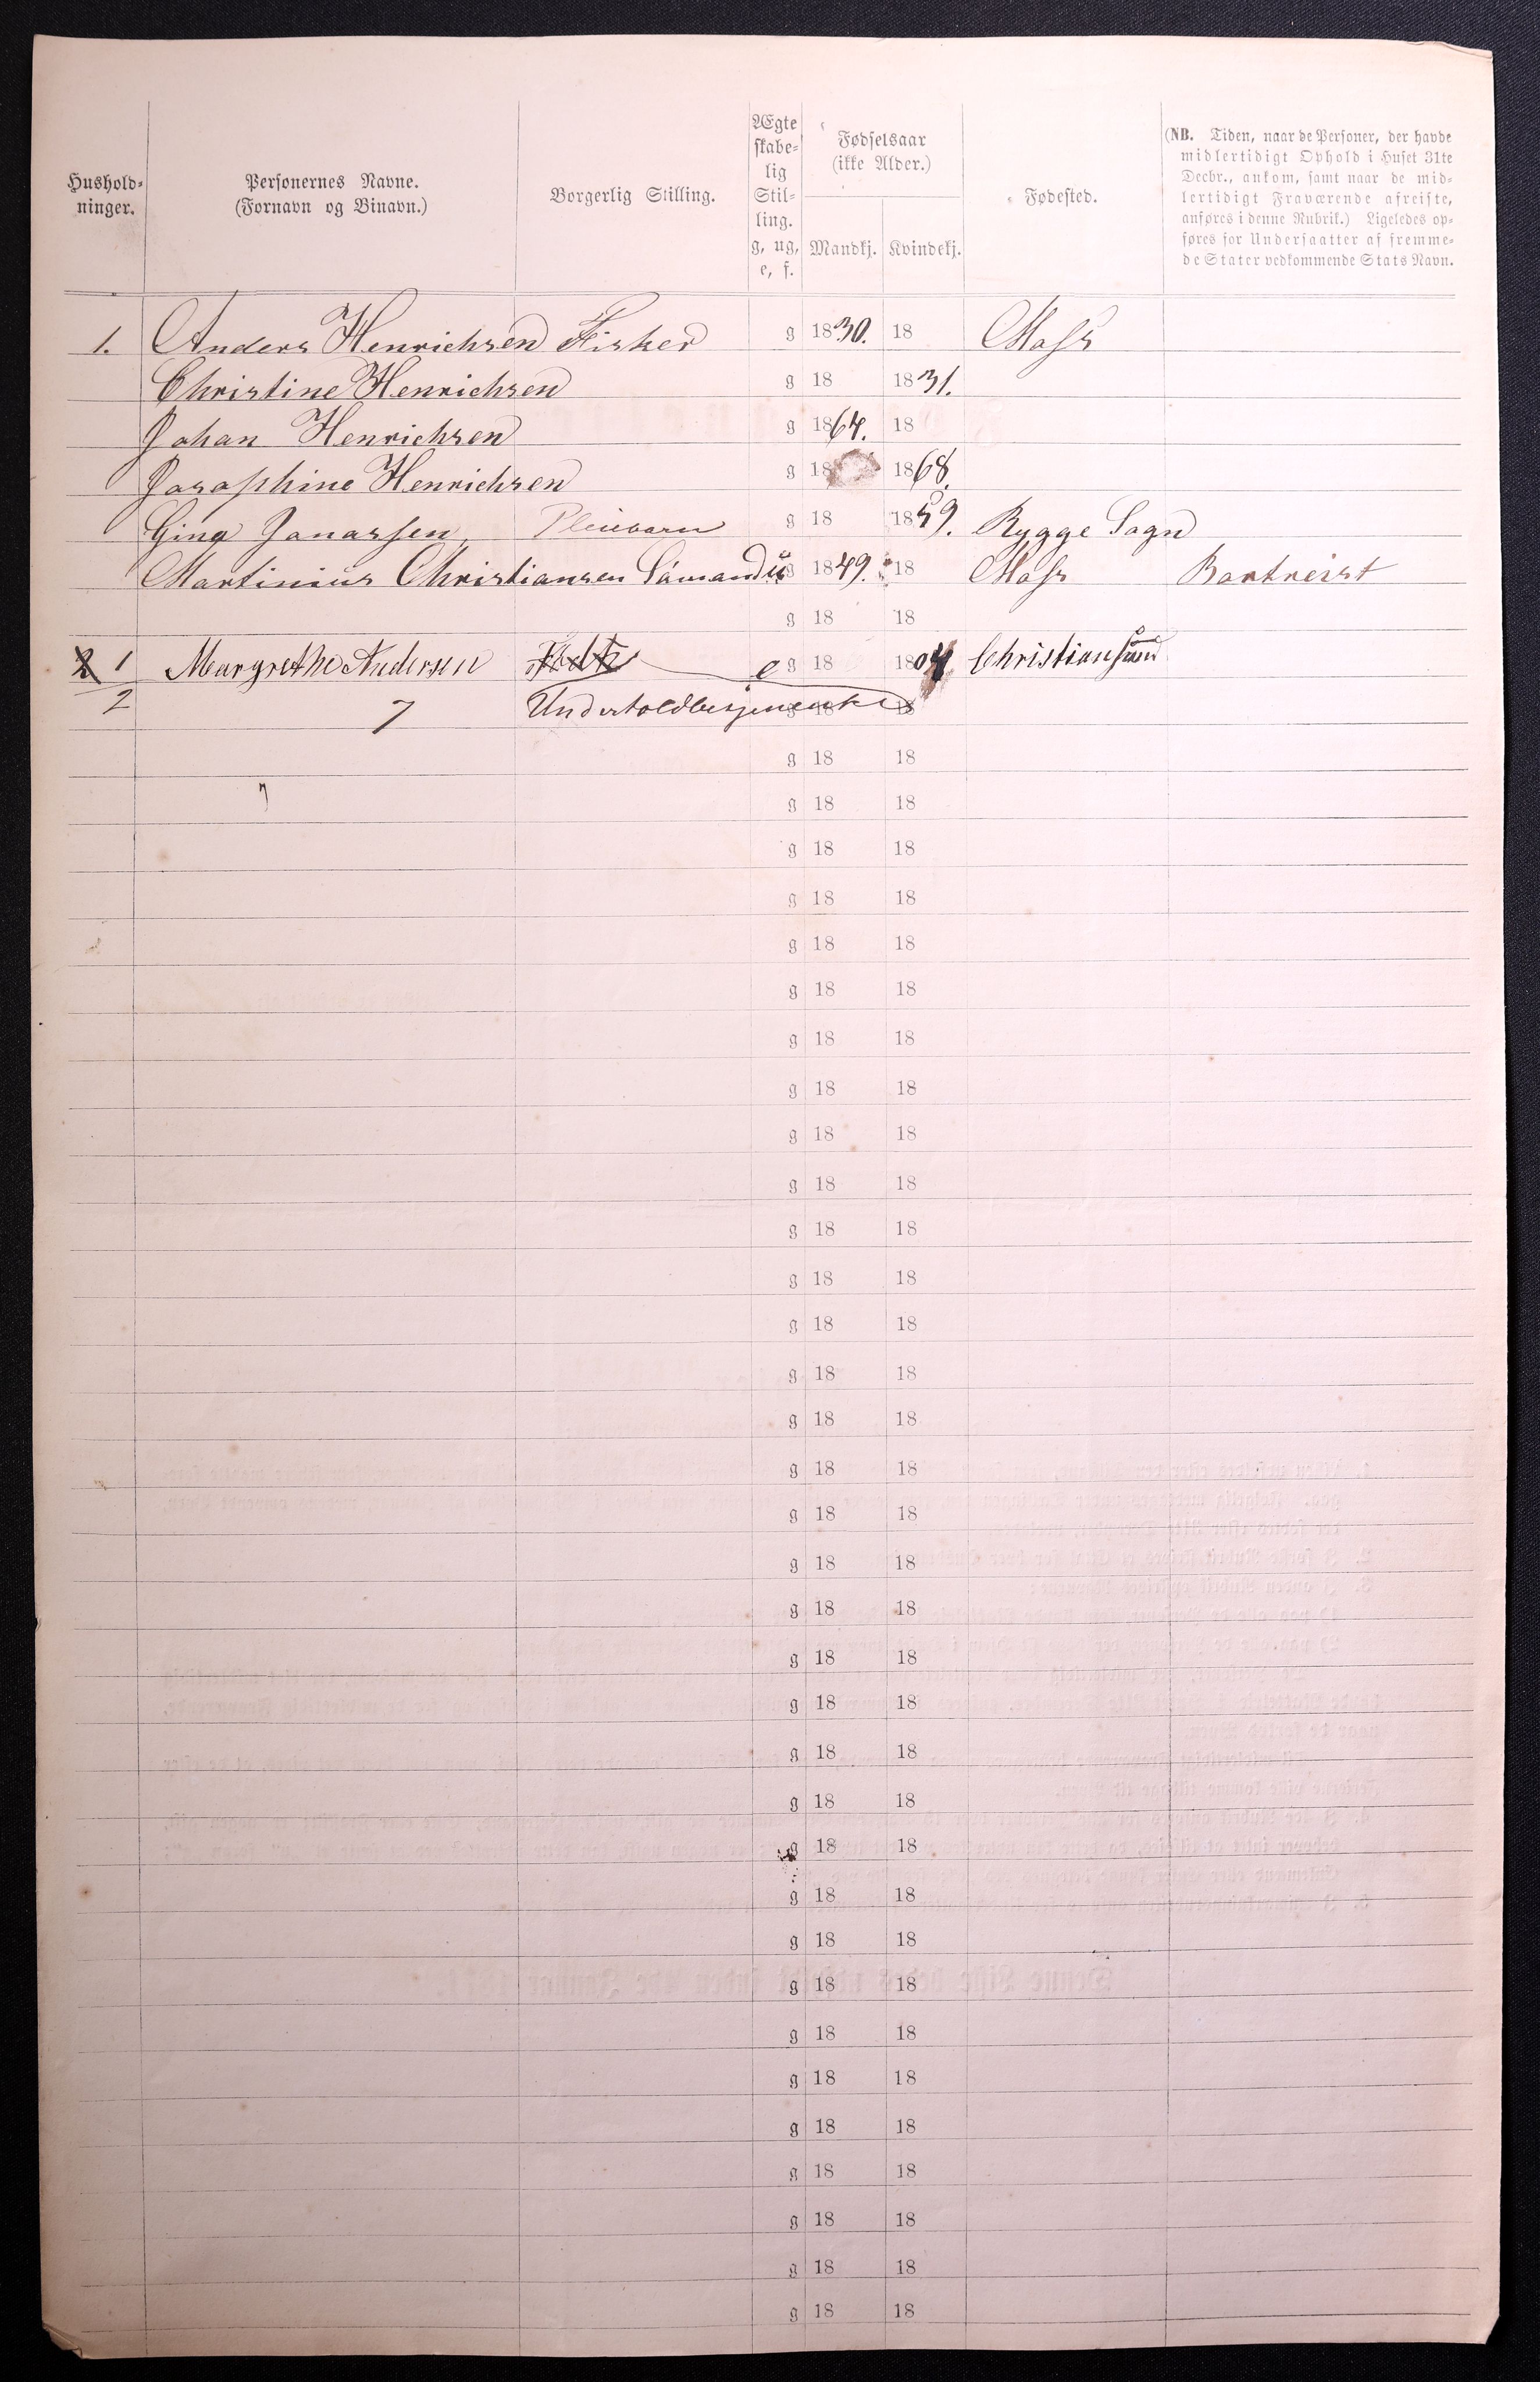 Hushold-
ninger.
Personernes Navne.
(Fornavn og Binavn.)
Borgerlig Stilling.
Ægte
skabe-
lig
Stil-
ling.
g, ug,
e, f.
Fødselsaar
(ikke Alder.)
Mandkj. Kvindekj.
Fødested.
(NB. Tiden, naar de Personer, der havde
midlertidigt Ophold i Huset 31te
Decbr., ankom, samt naar de mid-
lertidigt Fraværende afreiste,
anføres i denne Rubrik.) Ligeledes op-
føres for Undersaatter af fremme-
de Stater vedkommende Stats Navn.
1. Anders Henrichsen Fisker g 1830. 18 Moss
Christine Henrichsen g 18 1831.
Johan Henrichsen g 1864. 18
Josophine Henrichsen g 18 1868.
Gina Jonassen Pleiebarn g 18 1859. Rygge Sogn
Martinius Christiansen Sømand u g 1849. 18 Moss Bortreist
g 18 18
2 1 Margrethe Andersen e g 18 1804 Christiansund
2 7 Undertoldbetjenenke g 18 18
g 18 18
7 g 18 18
g 18 18
g 18 18
g 18 18
g 18 18
g 18 18
g 18 18
g 18 18
g 18 18
g 18 18
g 18 18
g 18 18
g 18 18
g 18 18
g 18 18
g 18 18
g 18 18
g 18 18
g 18 18
g 18 18
g 18 18
g 18 18
g 18 18
g 18 18
g 18 18
g 18 18
g 18 18
g 18 18
g 18 18
g 18 18
g 18 18
g 18 18
g 18 18